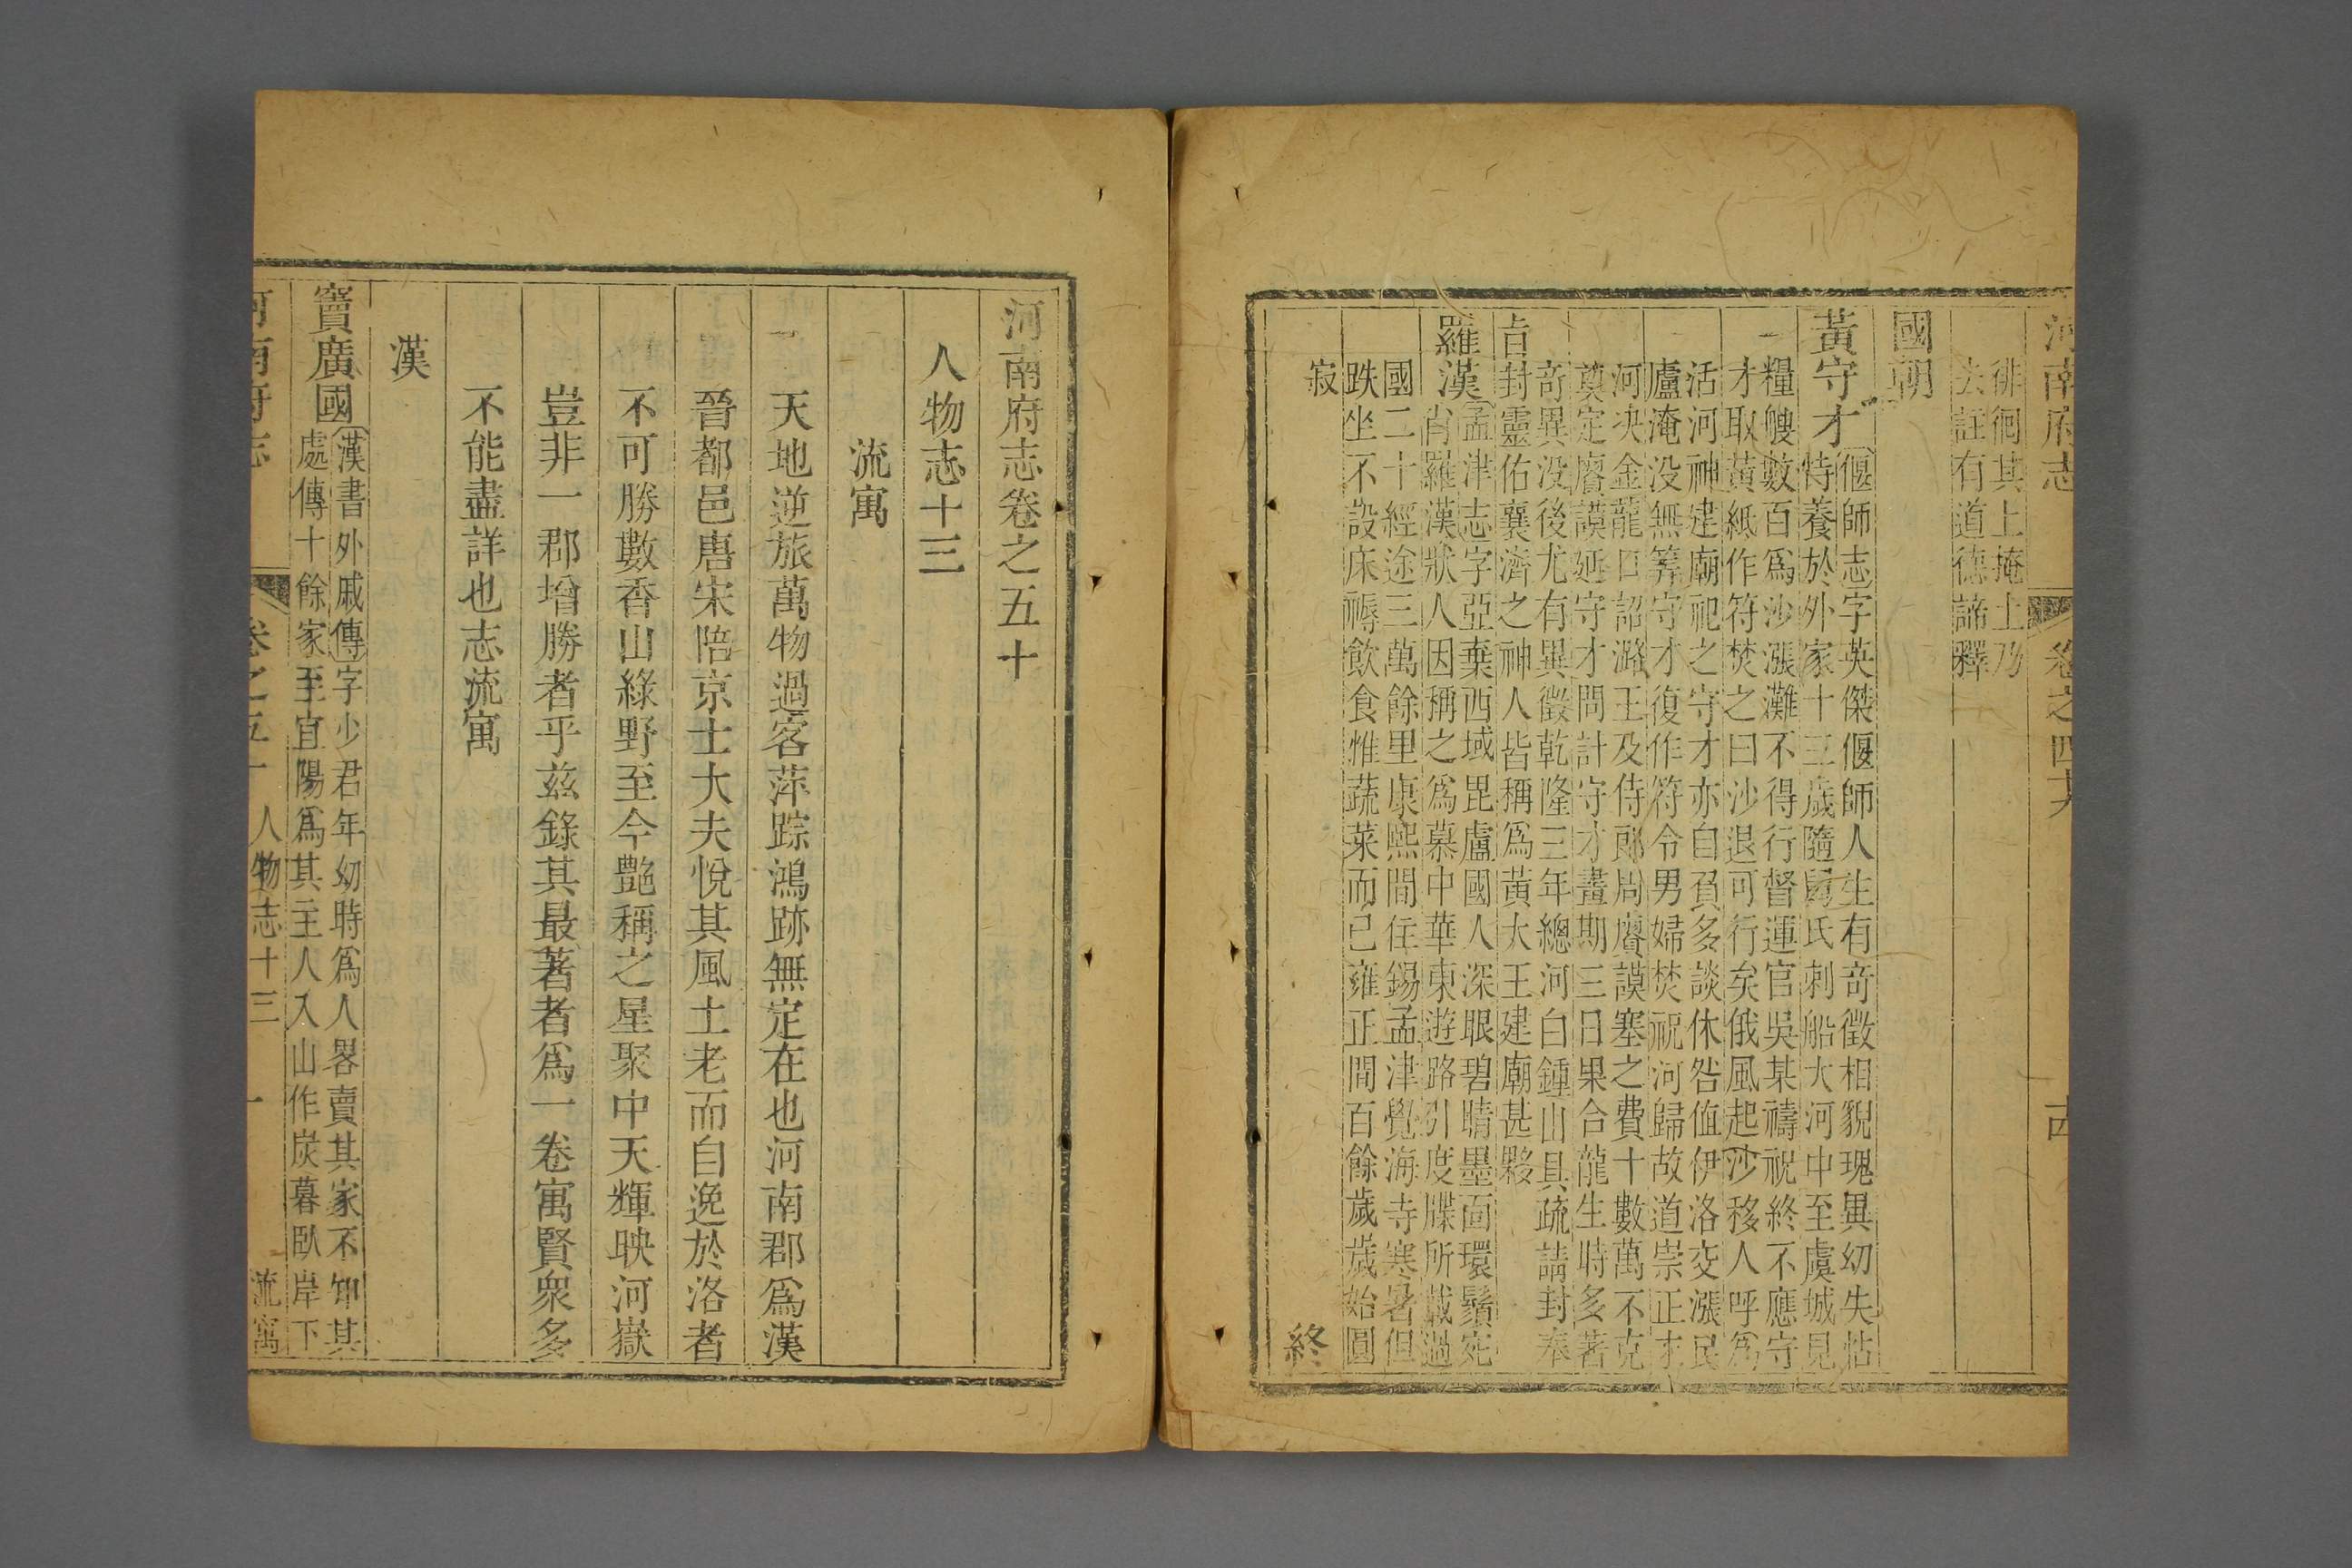 河南府志
卷之四十九
徘徊其上掩土乃
去註有道德諦釋
國朝
黃守才
偃師志字英傑偃師人生有奇徵相貌瑰異幼失怙
恃養於外家十三歲隨舅氏刺船大河中至虞城見
糧艘數百爲沙漲灘不得行督運官吳某禱祝終不應守
才取黃紙作符焚之曰沙退可行矣俄風起沙移人呼爲
活河神建廟祀之守才亦自負多談休咎値伊洛交漲民
廬淹没無筭守才復作符令男婦焚祝河歸故道崇正才
河决金龍口詔潞王及侍郎周賡謨塞之費十數萬不克
奠定賡謨延守才問計守才畫期三日果合龍生時多著
奇異没後尤有異徵乾隆三年總河白鍾山具疏請封奉
旨封靈佑襄濟之神人皆稱爲黃大王建廟甚夥
羅漢
孟津志字亞棄西域毘盧國人深眼碧睛墨面環鬚宛
肖羅漢狀人因稱之爲慕中華東遊路引度牒所載過
國二十經途三萬餘里康熙間住錫孟津覺海寺寒暑但
趺坐不設床褥飲食惟蔬菜而已雍正間百餘歲歲始圓
寂
終
河南府志卷之五十
人物志十三
流寓
天地逆旅萬物過客萍踪鴻跡無定在也河南郡爲漢
晉都邑唐宋陪京士大夫悅其風土老而自逸於洛者
不可勝數香山綠野至今艷稱之星聚中天輝映河嶽
豈非一郡增勝者乎茲錄其最著者爲一卷寓賢衆多
不能盡詳也志流寓
漢
竇廣國
漢書外戚傳字少君年幼時爲人畧賣其家不知其
處傳十餘家至宜陽爲其主人入山作炭暮臥岸下
河南府志
卷之五十
人物志十三
一
流寓